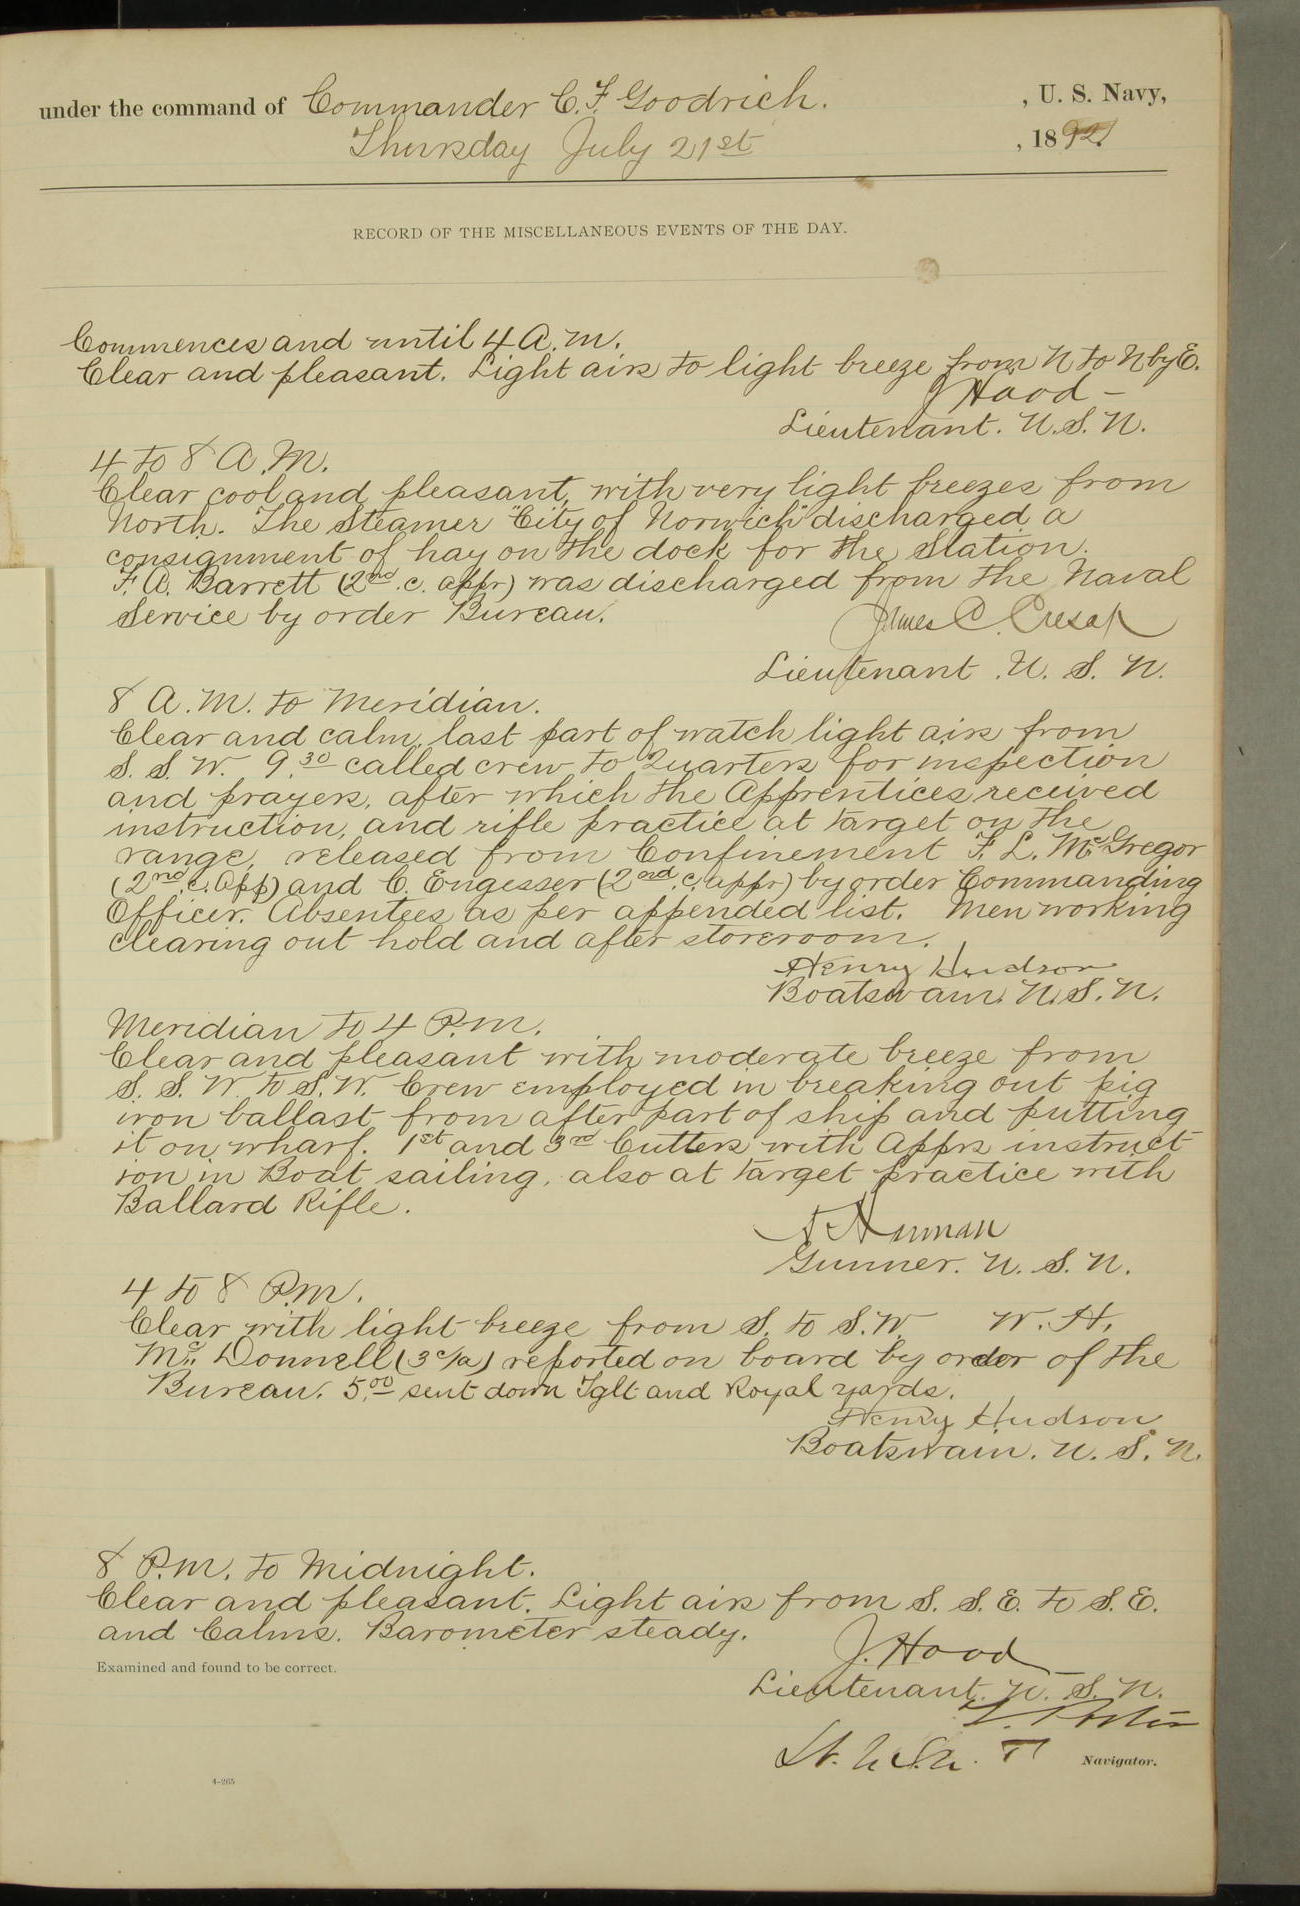 under the command of Commander C. F. Goodrich. , U. S. Navy,
Thursday July 21st , 1892.
RECORD OF THE MISCELLANEOUS EVENTS OF THE DAY.
Commences and until 4 A.M.
Clear and pleasant. Light airs to light breeze from N to N by E.
J Hood
Lieutenant. U.S.N.
4 to 8 A.M.
Clear cool and pleasant, with very light breezes from
North. The Steamer "City of Norwich" discharged a
consignment of hay on the dock for the Station.
F. A. Barrett (2nd. c. appr) was discharged from the Naval
Service by order Bureau.
James C. Cresap
Lieutenant. U. S. N.
8 A.M. to Meridian.
Clear and calm, last part of watch light airs from
S. S. W. 9.30 called crew to Quarters for inspection
and prayers, after which the Apprentices received
instruction, and rifle practice at target on the
range, released from Confinement F. L. McGregor
(2nd. c. App) and C. Engesser (2nd. c. appr) by order Commanding
Officer. Absentees as per appended list. Men working
clearing out hold and after storeroom.
Henry Hudson
Boatswain. U.S.N.
Meridian to 4 P.M.
Clear and pleasant with moderate breeze from
S. S. W. to S. W. Crew employed in breaking out pig
iron ballast from after part of ship and putting
it on wharf. 1st and 3rd Cutters with Apprs instruct-
ion in Boat sailing, also at target practice with
Ballard Rifle.
Gunner. U. S. N.
4 to 8 P.M.
Clear with light breeze from S. to S.W. W. H.
Mc. Donnell (3 c/a) reported on board by order of the
Bureau. 5.00 sent down Tglt and Royal yards.
Henry Hudson
Boatswain. U. S. N.
8 P.M. to Midnight.
Clear and pleasant. Light airs from S. S. E. to S. E.
and Calms. Barometer steady.
J. Hood
Examined and found to be correct.
Lieutenant. U. S. N.
Lt. U.S.N.
Navigator.
4-265